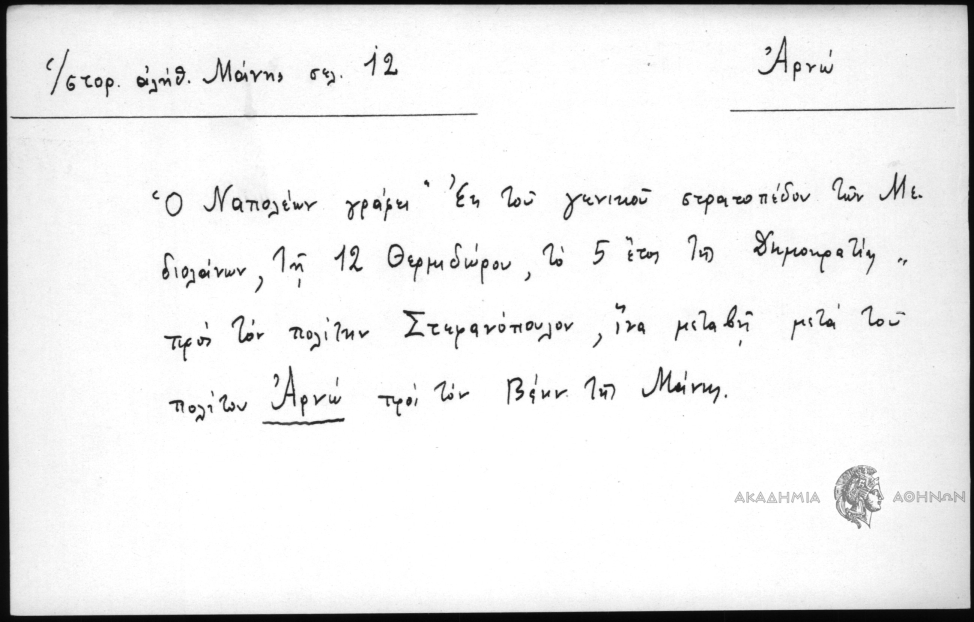 Ἱστορ. ἀλήθ. Μάνης σελ. 12
Ἀρνώ
Ὁ Ναπολέων γράφει "Ἐκ τοῦ γενικοῦ στρατοπέδου τῶν Με-
διολάνων, τῇ 12 Θερμιδώρου, τὸ 5 ἔτος τῆς Δημοκρατίας"
πρὸς τὸν πολίτην Στεφανόπουλον, ἵνα μεταβῇ μετὰ τοῦ
πολίτου Ἀρνώ πρὸς τὸν Βέην τῆς Μάνης.
ΑΚΑΔΗΜΙΑ ΑΘΗΝΩΝ